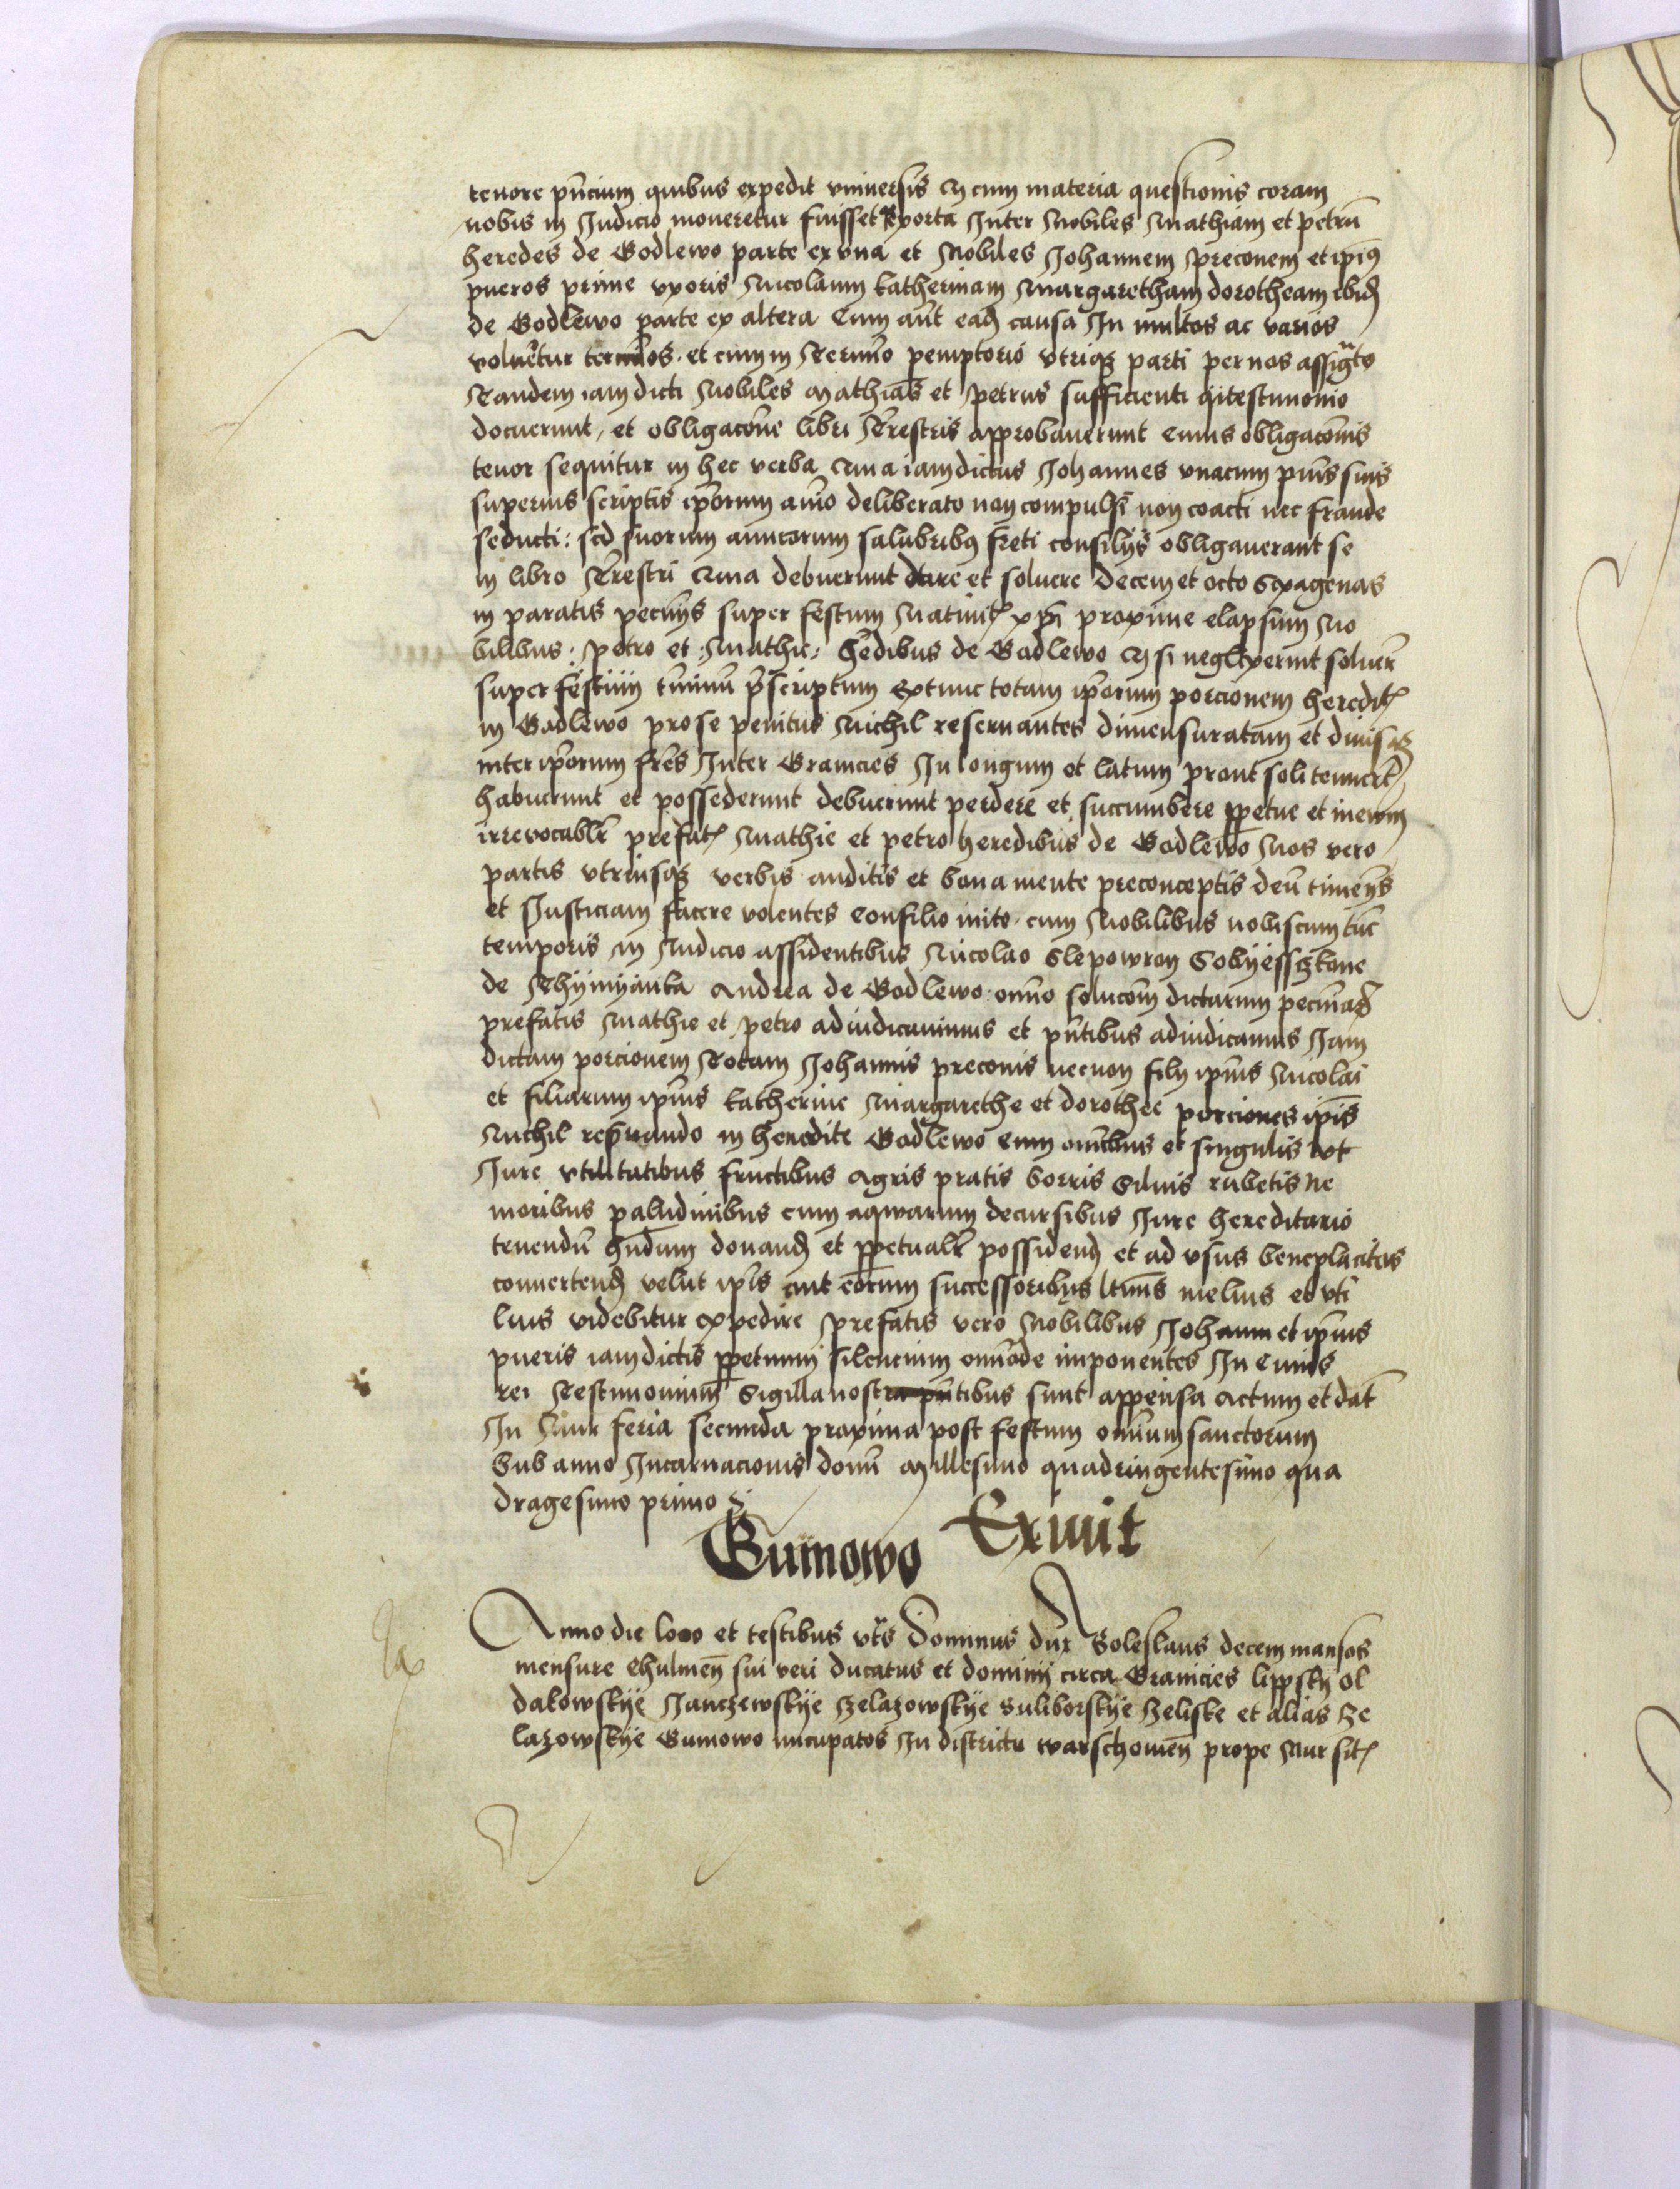 tenore pñcium quibus expedit vniuersis q̃ cum materia questionis coram
nobis in Judicio moueretur fuisset exorta Inter Nobiles Mathiam et petrũ
heredes de Godlewo parte ex vna et Nobiles Johannem preconem et ipi9
pueros prime vxoris Nicolaum katherinam Margaretham dorotheam ibid
de Godlewo parte ex altera Cum aũt ead causa In multos ac varios
voluer̃tur terminos et cum in Termĩo pemptorio vtriq3 parti per nos assig̃to
Tandem iam dicti Nobiles Mathias et petrus sufficienti testimonio
docuerunt et obligacõne libri Terrestris approbauerunt Cuius obligacõnis
tenor sequitur in hec verba Quia iamdictus Johannes vnacum pũis suis
superius scriptis ip̃orum aĩo deliberato non compulsi non coacti nec fraude
seducti: sed suorum amicorum salubribus freti consilijs obligauerant se
in libro Trestri Quia debuerunt dare et soluere decem et octo Sexagenas
in paratis pecũijs super festum Natiuit xp̃i proxime elapsum No
bilibus: petro et Mathie: hedibus de Godlewo q̃ si neglexerint soluer̃
super festum tminũ p̃scriptum extunc totam ip̃orum porcionem heredit
in Godlewo pro se penitus Nichil reseruantes dimensuratam et diuisaq3
inter ip̃orum fres Inter Granicies In longum et latum prout soli tenuert
habuerunt et possederunt debuerunt perdere et succumbere ppetue et in ewm
irreuocablr prefat Mathie et petro heredibus de Godlewo Nos vero
partis vtriusq3 verbis auditis et bona mente preconceptis deũ timen̄s
et Justiciam facere volentes Consilio inito cum Nobilibus nobiscum tũc
temporis in Judicio assidentibus Nicolao Slepowron Sobyessz
de Thymyanka Andrea de Godlewo om̃o solucõm dictarum pecuniar
prefatis Mathie et petro adiudicauimus et pñtibus adiudicamus Jam
dictam porcionem Totam Johannis preconis necnon filij ip̃ius Nicolai
et filiarum ip̃ius katherine Margarethe et dorothee porciones ip̃is
Nichil resuando in heredite Godlewo cum om̃ibus et singulis
Jure vtilitatibus fructibus Agris pratis borris Siluis rubetis Ne
moribus paludinibus cum aqwarum decursibus Jure hereditario
tenendũ hñdum donand et ppetualr possidend et ad vsus beneplacitos
conuertend velut ip̃is aut eorum successoribus ltimis melius et vti
lius videbitur expedire prefatis vero Nobilibus Johanni et ip̃ius
pueris iam dictis ppetuum silencium om̃ode imponentes In Cuius
rei Testimonium Sigilla nostra pñtibus sunt appensa Actum et dat
In Nur feria secunda proxima post festum om̃ium sanctorum
Sub anno Incarnacionis domĩ Millesimo quadringentesimo qua
dragesimo primo
Gumowo Exiuit
Anno die loco et testibus vts Dominus dux Boleslaus decem mansos
mensure Chulmen̄ sui veri ducatus et dominij circa Granicies lippsky ol
dakowskye Janczewskye Zelazowskye Suliborskye Zeliske et alias ze
lazowskye Gumowo nūcupatos In districtu warschouien̄ prope Nur sit